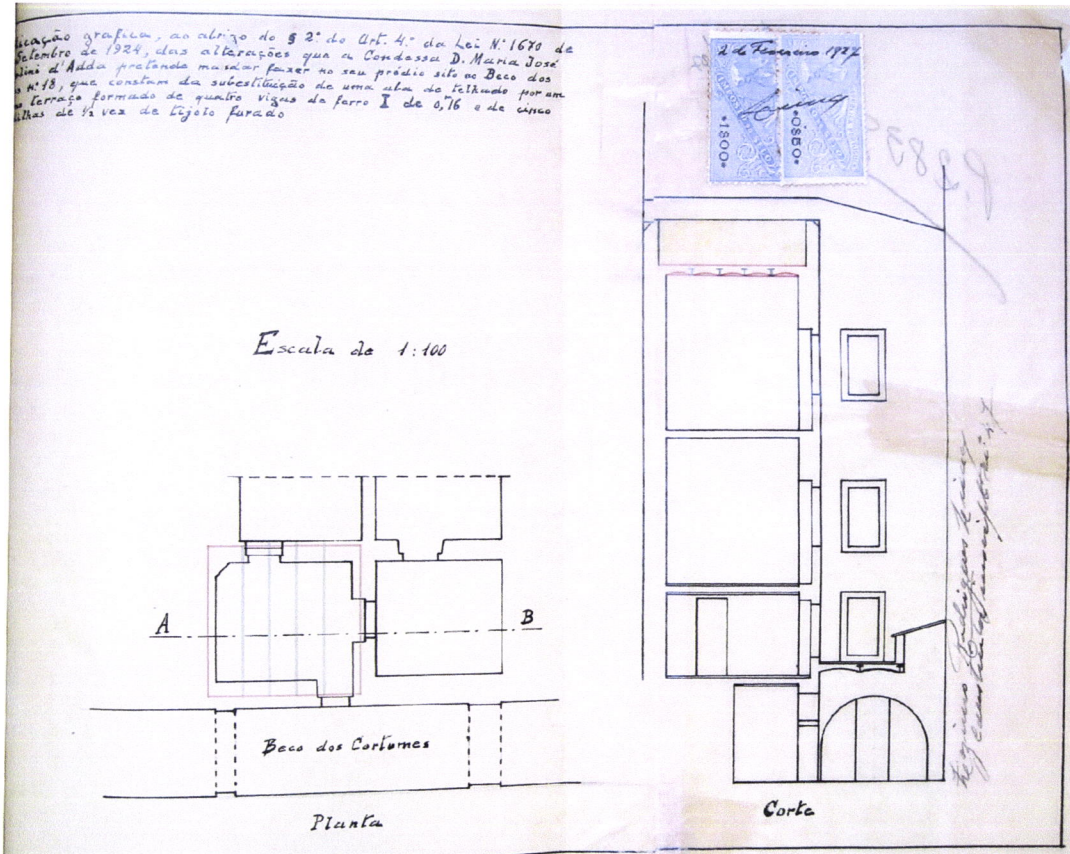 icação grafica, ao abrigo do § 2º do Art. 4º da Lei Nº 1670 de
Setembro de 1924, das alterações que a Condessa D. Maria José
d'Adda pretende mandar fazer no seu prédio sito no Beco dos
nº 18, que constam da subestituição de uma aba de telhado por um
terraço formado de quatro vigas de ferro I de 0,16 e de cinco
ilhas de ½ vez de tijolo furado
2 de Fevereiro 1927
*1$00*
*0$50*
Escala de 1:100
A
B
Beco dos Cortumes
Planta
Corte